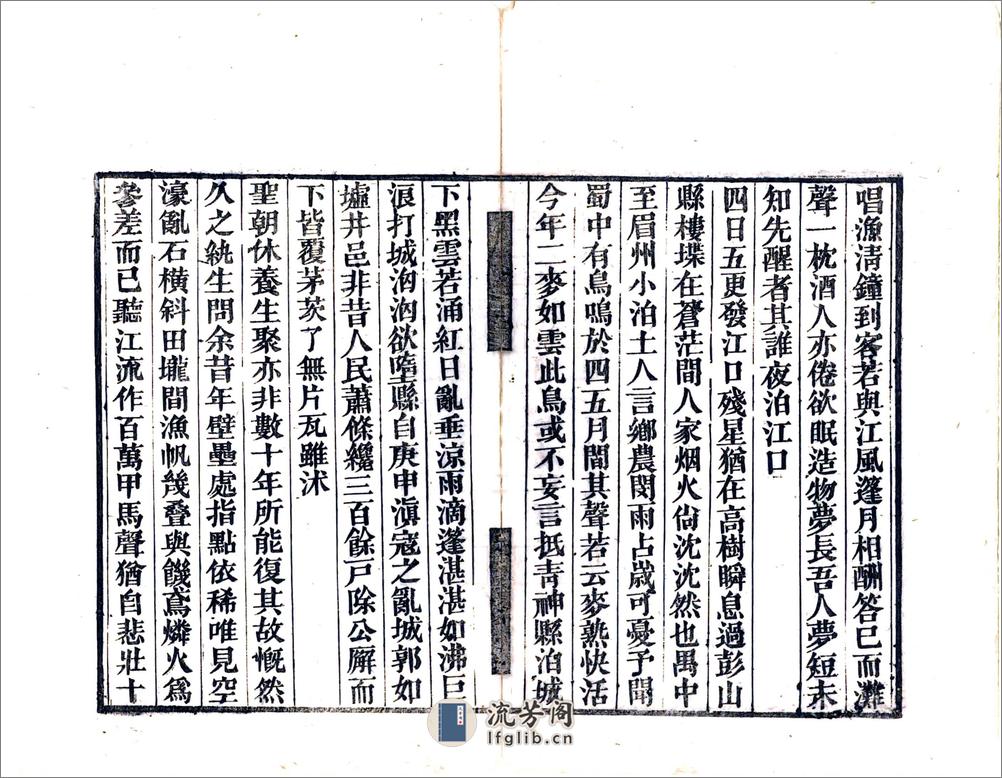 唱漁清鐘到客若與江風蓬月相酬答已而灘
聲一枕酒人亦倦欲眠造物夢長吾人夢短未
知先醒者其誰夜泊江口
四日五更發江口殘星猶在高樹瞬息過彭山
縣樓堞在蒼茫間人家烟火尙沈沈然也禺中
至眉州小泊土人言鄉農閔雨占歲可憂予聞
蜀中有鳥鳴於四五月間其聲若云麥熟快活
今年二麥如雲此鳥或不妄言抵靑神縣泊城
下黑雲若涌紅日亂垂涼雨滴蓬湛湛如沸巨
浪打城洶洶欲墮縣自庚申滇寇之亂城郭如
墟井邑非昔人民蕭條纔三百餘戸除公廨而
下皆覆茅茨了無片瓦雖沭
聖朝休養生聚亦非數十年所能復其故慨然
久之紈生問余昔年壁壘處指點依稀唯見空
濠亂石橫斜田壠間漁帆幾疊與饑鳶燐火爲
參差而已聽江流作百萬甲馬聲猶自悲壯十
流芳阁
lfglib.cn